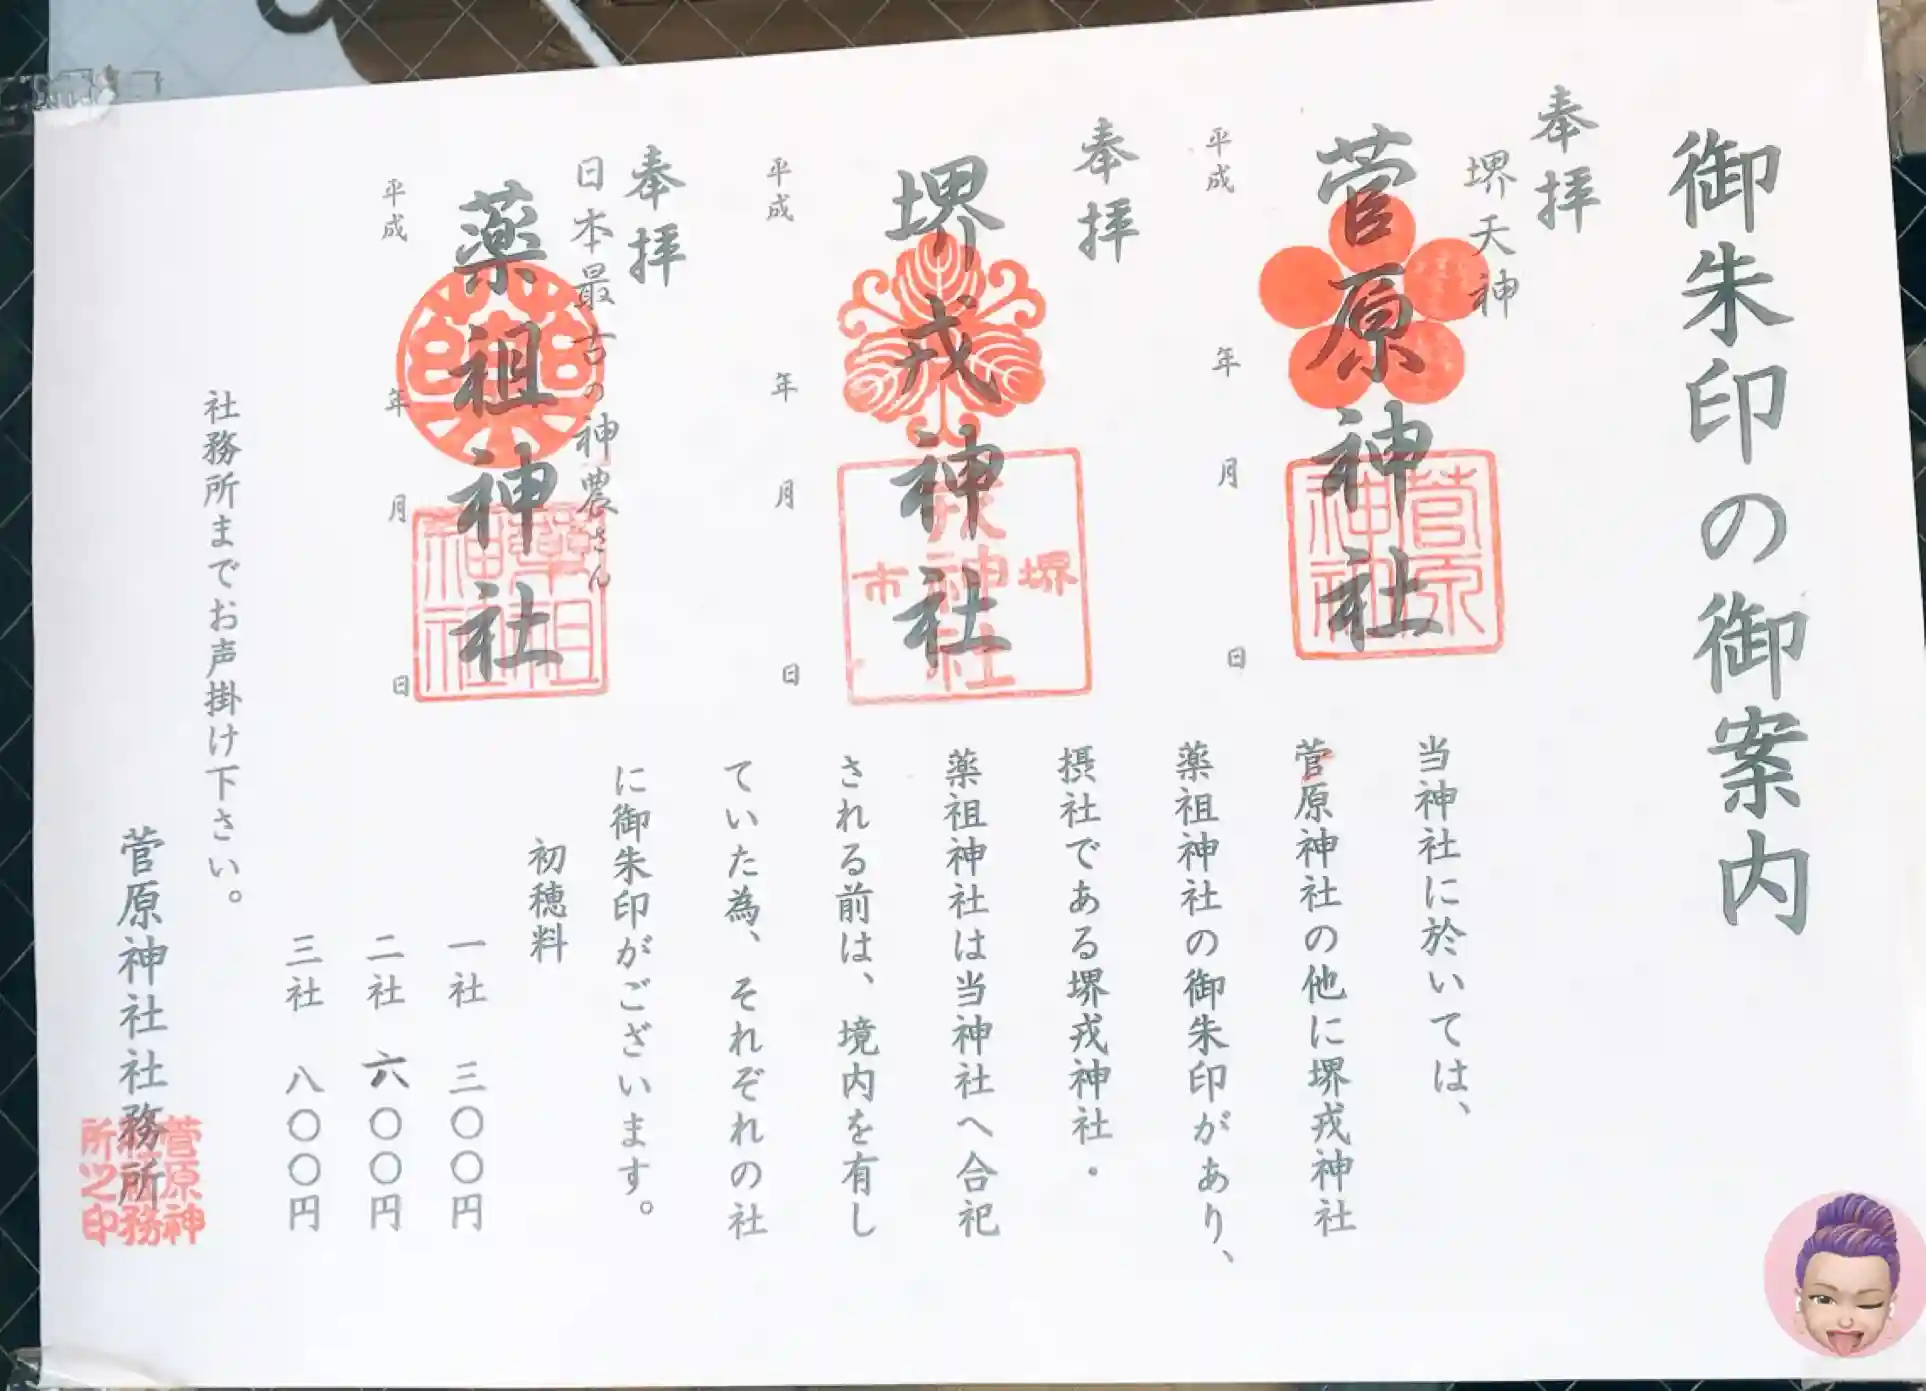 御朱印の御案内
奉拝
堺天神
菅原神社
菅原
神社
平成 年 月 日
奉拝
堺戎神社
堺
戎神社
市
平成 年 月 日
奉拝
日本最古の神農さん
薬祖神社
平成 年 月 日
当神社に於いては、
菅原神社の他に堺戎神社
薬祖神社の御朱印があり、
摂社である堺戎神社・
薬祖神社は当神社へ合祀
される前は、境内を有し
ていた為、それぞれの社
に御朱印がございます。
初穂料
一社 三〇〇円
二社 六〇〇円
三社 八〇〇円
社務所までお声掛け下さい。
菅原神社社務所
菅原神
社社務
所之印